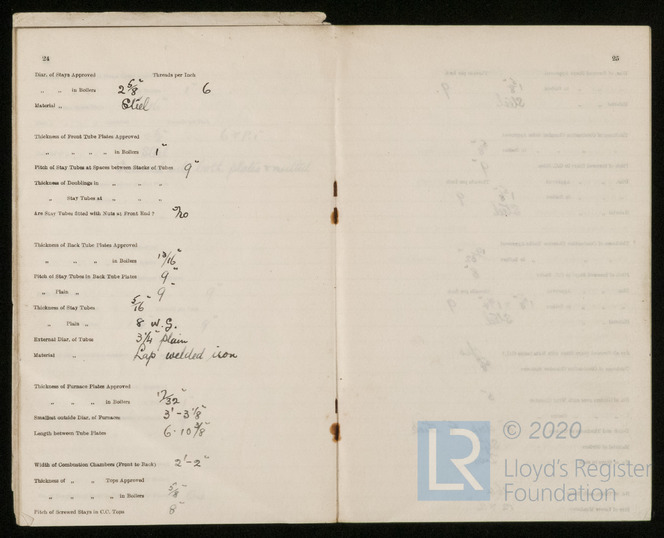 24
Diar. of Stays Approved Threads per Inch
„ „ in Boilers 2 5/8" 6
Material „ Steel
Thickness of Front Tube Plates Approved
„ „ „ „ in Boilers 1"
Pitch of Stay Tubes at Spaces between Stacks of Tubes 9"
Thickness of Doublings in „ „ „
„ Stay Tubes at „ „ „
Are Stay Tubes fitted with Nuts at Front End?
Thickness of Back Tube Plates Approved
„ „ „ „ in Boilers 13/16"
Pitch of Stay Tubes in Back Tube Plates 9"
„ Plain „ 9"
Thickness of Stay Tubes 5/16"
„ Plain „ 8 W.G.
External Diar. of Tubes 3 1/4" plain
Material „ Lap welded iron
Thickness of Furnace Plates Approved
„ „ „ in Boilers 17/32"
Smallest outside Diar. of Furnaces 3'-3 1/8"
Length between Tube Plates 6-10 3/8"
Width of Combustion Chambers (Front to Back) 2'-2"
Thickness of „ „ Tops Approved
„ „ „ „ in Boilers 5/8"
Pitch of Screwed Stays in C.C. Tops 8"
25
LR © 2020
Lloyd's Register
Foundation